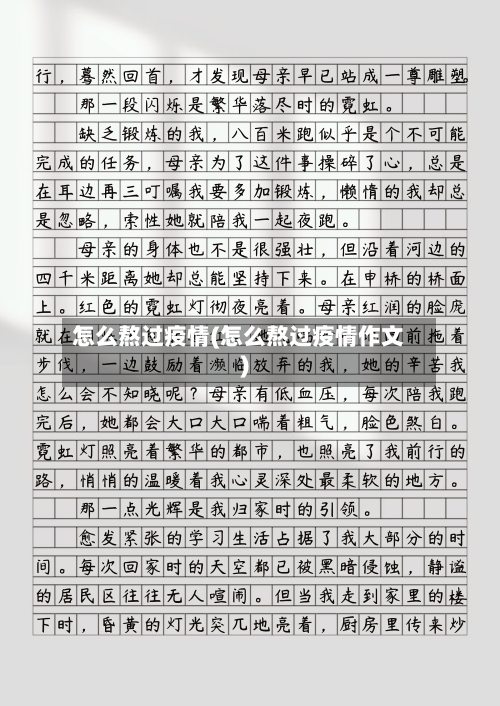 行，蓦然回首，才发现母亲早已站成一尊雕塑。
那一段闪烁是繁华落尽时的霓虹。
缺乏锻炼的我，八百米跑似乎是个不可能
完成的任务，母亲为了这件事操碎了心，总是
在耳边再三叮嘱我要多加锻炼，懒惰的我却总
是忽略，索性她就陪我一起夜跑。
母亲的身体也不是很强壮，但沿着河边的
四千米距离她却总能坚持下来。在申桥的桥面
上。红色的霓虹灯彻夜亮着。母亲红润的脸庞
就在
怎么熬过疫情(怎么熬过疫情作文
)
前拖着
步伐，一边鼓励着濒临放弃的我，她的辛苦我
怎么会不知晓呢？母亲有低血压，每次陪我跑
完后，她都会大口大口喘着粗气，脸色煞白。
霓虹灯照亮着繁华的都市，也照亮了我前行的
路，悄悄的温暖着我心灵深处最柔软的地方。
那一点光辉是我归家时的引领。
愈发紧张的学习生活占据了我大部分的时
间。每次回家时的天空都已被黑暗侵蚀，静谧
的居民区往往无人喧闹。但当我走到家里的楼
下时，昏黄的灯光突兀地亮着，厨房里传来炒